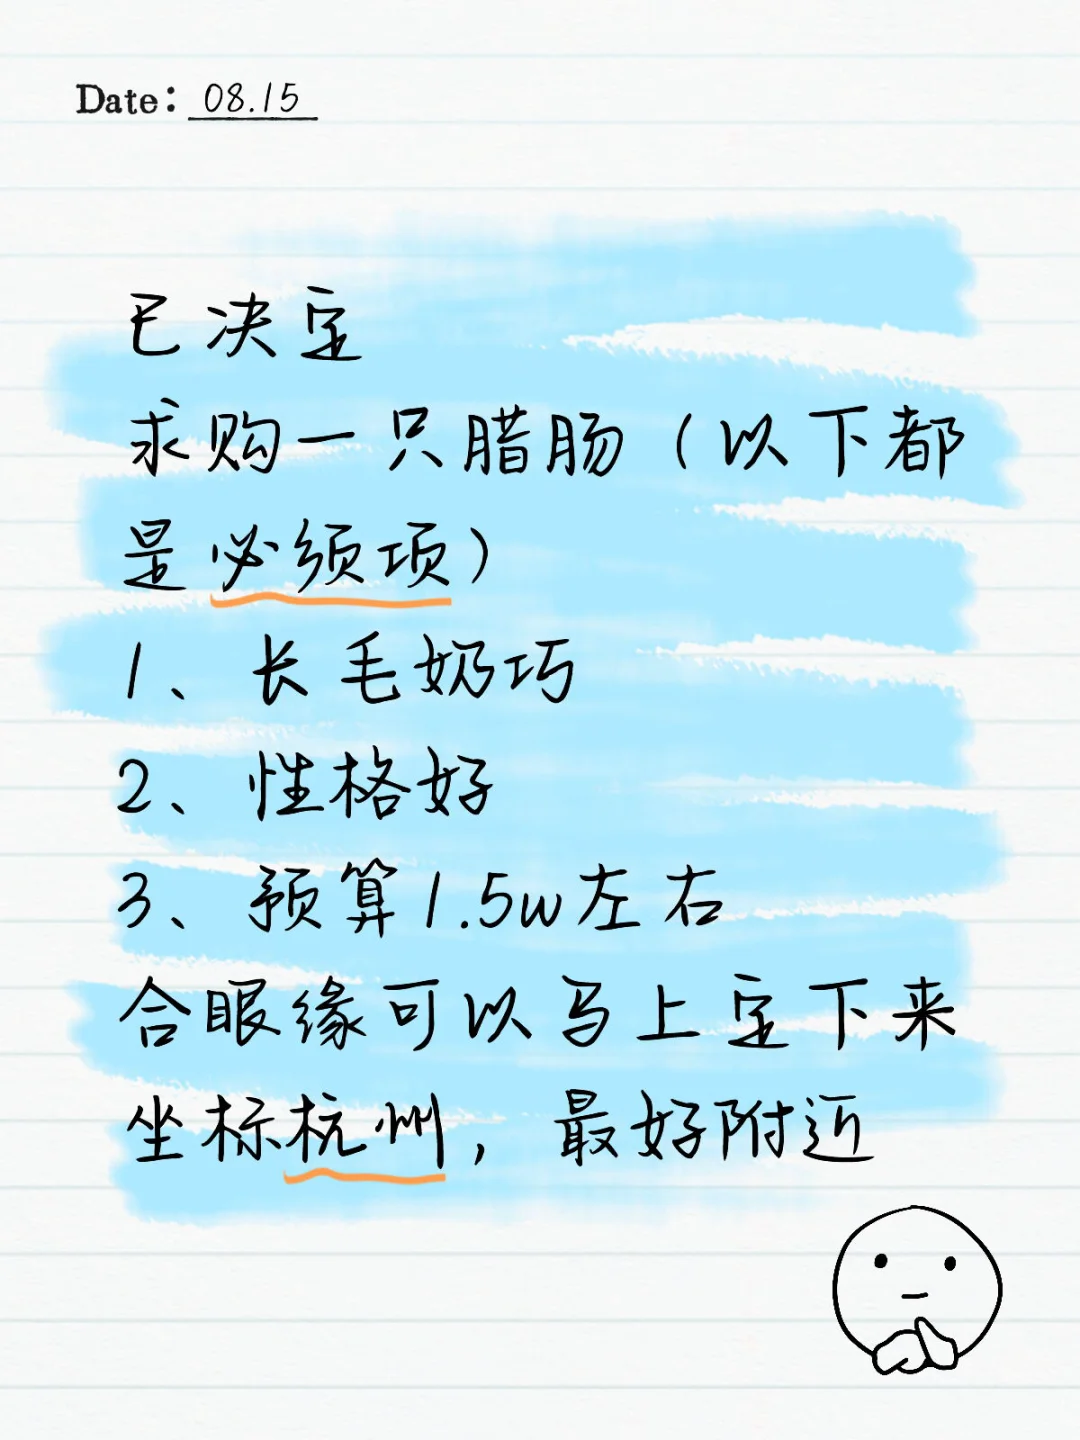 Date: 08.15
已决定
求购一只腊肠（以下都
是必须项）
1、长毛奶巧
2、性格好
3、预算1.5w左右
合眼缘可以马上定下来
坐标杭州，最好附近